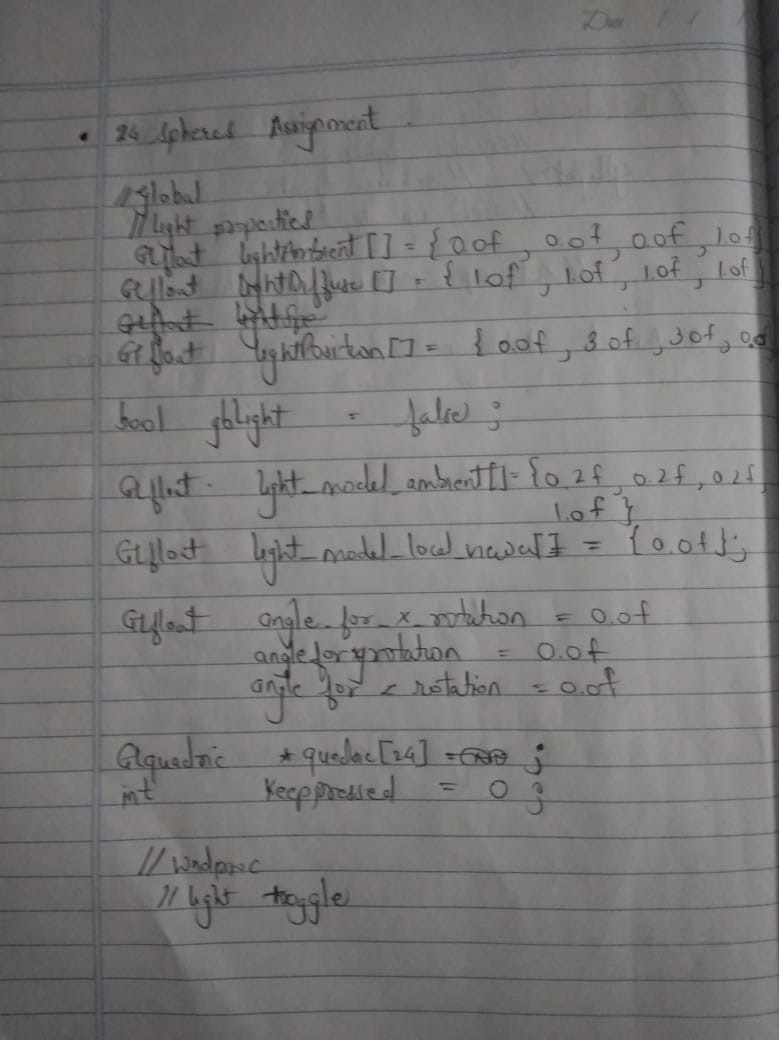 • 24 Spheres Assignment
//global
//light properties
GLfloat lightAmbient[] = {0.0f, 0.0f, 0.0f, 1.0f}
GLfloat lightDiffuse[] = {1.0f, 1.0f, 1.0f, 1.0f}
GLfloat lightSpe
GLfloat lightPosition[] = {0.0f, 3.0f, 3.0f, 0.0
bool gbLight = false;
GLfloat light_model_ambient[]={0.2f, 0.2f, 0.2f,
1.0f}
GLfloat light_model_local_viewer[] = {0.0f};
GLfloat angle_for_x_rotation = 0.0f
angleforyrotation = 0.0f
angle for z rotation = 0.0f
GLquadric *quadric[24] = ;
int Keeppressed = 0;
//Wndproc
//light toggle